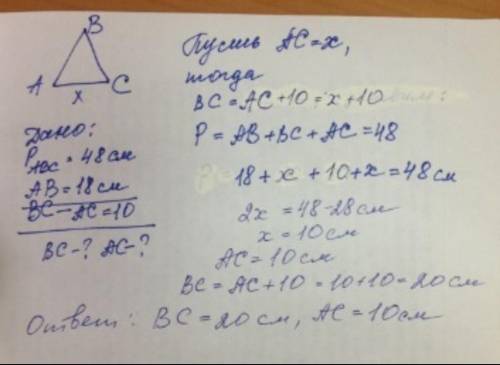 B
A
x
C
Дано:
P ABC = 48 см
AB = 18 см
BC - AC = 10
BC - ? AC - ?
Пусть AC = x,
тогда
BC = AC + 10 = x + 10
P = AB + BC + AC = 48
18 + x + 10 + x = 48 см
2x = 48 - 28 см
x = 10 см
AC = 10 см
BC = AC + 10 = 10 + 10 = 20 см
Ответ: BC = 20 см, AC = 10 см